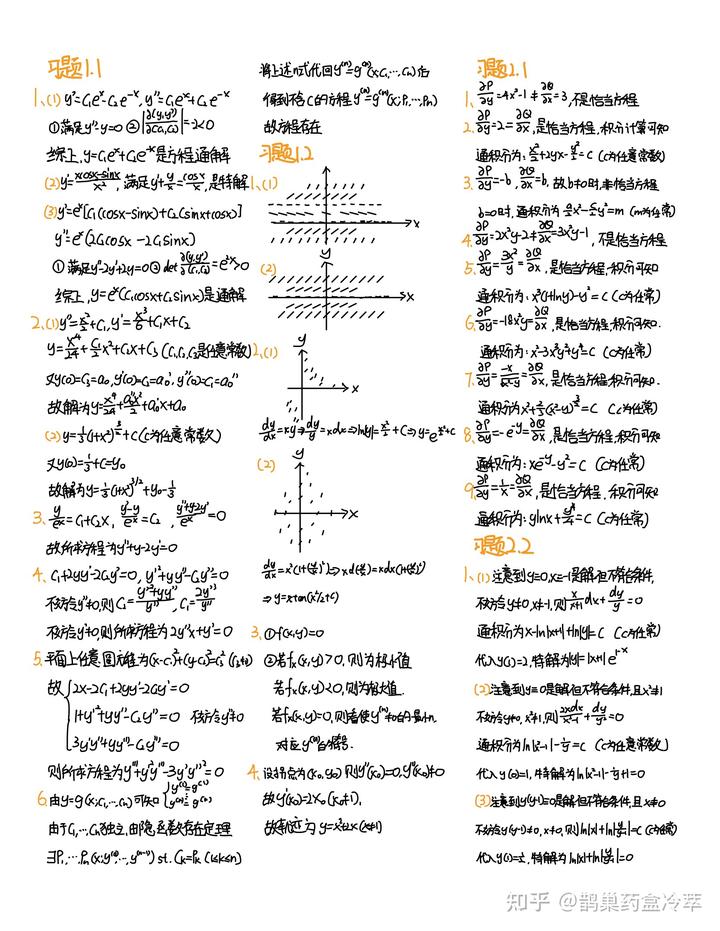 习题1.1
1、(1) y'=C₁eˣ-C₂e⁻ˣ, y''=C₁eˣ+C₂e⁻ˣ
①满足y''-y=0 ②|∂(y,y')/∂(C₁,C₂)|=-2<0
综上, y=C₁eˣ+C₂e⁻ˣ是方程通解
(2) y'=(xcosx-sinx)/x², 满足y'+y/x=cosx/x, 是特解
(3) y'=eˣ[C₁(cosx-sinx)+C₂(sinx+cosx)]
y''=eˣ(2C₂cosx-2C₁sinx)
①满足y''-2y'+2y=0 ②det ∂(y,y')/∂(C₁,C₂)=e²ˣ>0
综上, y=eˣ(C₁cosx+C₂sinx)是通解
2、(1) y''=x²/2+C₁, y'=x³/6+C₁x+C₂
y=x⁴/24+C₁/2x²+C₂x+C₃ (C₁,C₂,C₃是任意常数)
又y(0)=C₃=a₀, y'(0)=C₂=a₀', y''(0)=C₁=a₀''
故解为y=x⁴/24+a₀''x²/2+a₀'x+a₀
(2) y=1/3(1+x²)^(3/2)+C (C为任意常数)
又y(0)=1/3+C=y₀
故解为y=1/3(1+x²)^(3/2)+y₀-1/3
3、y/eˣ=C₁+C₂x, (y'-y)/eˣ=C₂, (y''+y-2y')/eˣ=0
故所求方程为y''+y-2y'=0
4、C₁+2yy'-2C₂y'=0, y'²+yy''-C₂y''=0
不妨令y''≠0, 则C₂=(y'²+yy'')/y'', C₁=2y'³/y''
不妨令y'≠0, 则所求方程为2y''x+y'=0
5、平面上任意圆方程为(x-C₁)²+(y-C₂)²=C₃² (C₃≠0)
故 2x-2C₁+2yy'-2C₂y'=0
1+y'²+yy''-C₂y''=0 不妨令y''≠0
3y'y''+yy'''-C₂y'''=0
则所求方程为y'''+y'²y'''-3y'y''²=0
6、由y=g(x;C₁,…,Cₙ)可知 y⁽¹⁾=g⁽¹⁾
y⁽ⁿ⁾=g⁽ⁿ⁾
由于C₁,…,Cₙ独立, 由隐函数存在定理
∃P₁,…,Pₙ(x;y⁽¹⁾,…,y⁽ⁿ⁻¹⁾) st. Cₖ=Pₖ (1≤k≤n)
将上述n式代回y⁽ⁿ⁾=g⁽ⁿ⁾(x;C₁,…,Cₙ)后
得到不含C的方程y⁽ⁿ⁾=g⁽ⁿ⁾(x;P₁,…,Pₙ)
故方程存在
习题1.2
1、(1)
x
y
(2)
x
2、(1)
y
x
dy/dx=xy⇒dy/y=xdx⇒ln|y|=x²/2+C⇒y=e^(x²/2+C)
(2)
y
x
dy/dx=x²(1+(y/x)²)⇒xd(y/x)=xdx(1+(y/x)²)
⇒y=xtan(x²/2+C)
3、①f(x,y)=0
②若fₓ(x,y)>0, 则为极小值
若fₓ(x,y)<0, 则为极大值.
若fₓ(x,y)=0, 则看使y⁽ⁿ⁾≠0的最小n.
对应y⁽ⁿ⁾的符号.
4、设拐点为(x₀,y₀) 则y''(x₀)=0, y'''(x₀)≠0
习题2.1
1、∂P/∂y=4x²-1≠∂Q/∂x=3, 不是恰当方程
2、∂P/∂y=2=∂Q/∂x, 是恰当方程, 积分计算可知
通积分为: x²/2+2yx-y²/2=C (C为任意常数)
3、∂P/∂y=-b, ∂Q/∂x=b, 故b≠0时, 非恰当方程
b=0时, 通积分为a/2x²-c/2y²=m (m为任常)
4、∂P/∂y=2x²y-2≠∂Q/∂x=3x²y-1, 不是恰当方程
5、∂P/∂y=3x²/y=∂Q/∂x, 是恰当方程, 积分可知
通积分为: x³(1+lny)-y²=C (C为任常)
6、∂P/∂y=-18x²y=∂Q/∂x, 是恰当方程, 积分可知.
通积分为: x³-3x³y²+y⁴=C (C为任常)
7、∂P/∂y=-x/√(x²-y)=∂Q/∂x, 是恰当方程, 积分可知.
通积分为x²+2/3(x²-y)^(3/2)=C (C为任常)
8、∂P/∂y=-e⁻ʸ=∂Q/∂x, 是恰当方程, 积分可知
通积分为: xe⁻ʸ-y²=C (C为任常)
9、∂P/∂y=1/x=∂Q/∂x, 是恰当方程, 积分可知
通积分为: ylnx+y⁴/4=C (C为任常)
习题2.2
1、(1)注意到y=0, x=-1是解但不符合条件,
不妨令y≠0, x≠-1, 则x/(x+1)dx+dy/y=0
通积分为x-ln|x+1|+ln|y|=C (C为任常)
(2)注意到y=0是解但不符合条件, 且x²≠1
不妨令y≠0, x²≠1, 则2xdx/(x²-1)+dy/y²=0
通积分为ln|x²-1|-1/y=C (C为任意常数)
代入y(0)=1, 特解为ln|x²-1|-1/y+1=0
(3)注意到y(y-1)=0是解但不符合条件, 且x≠0
知乎 @鹊巢药盒冷萃